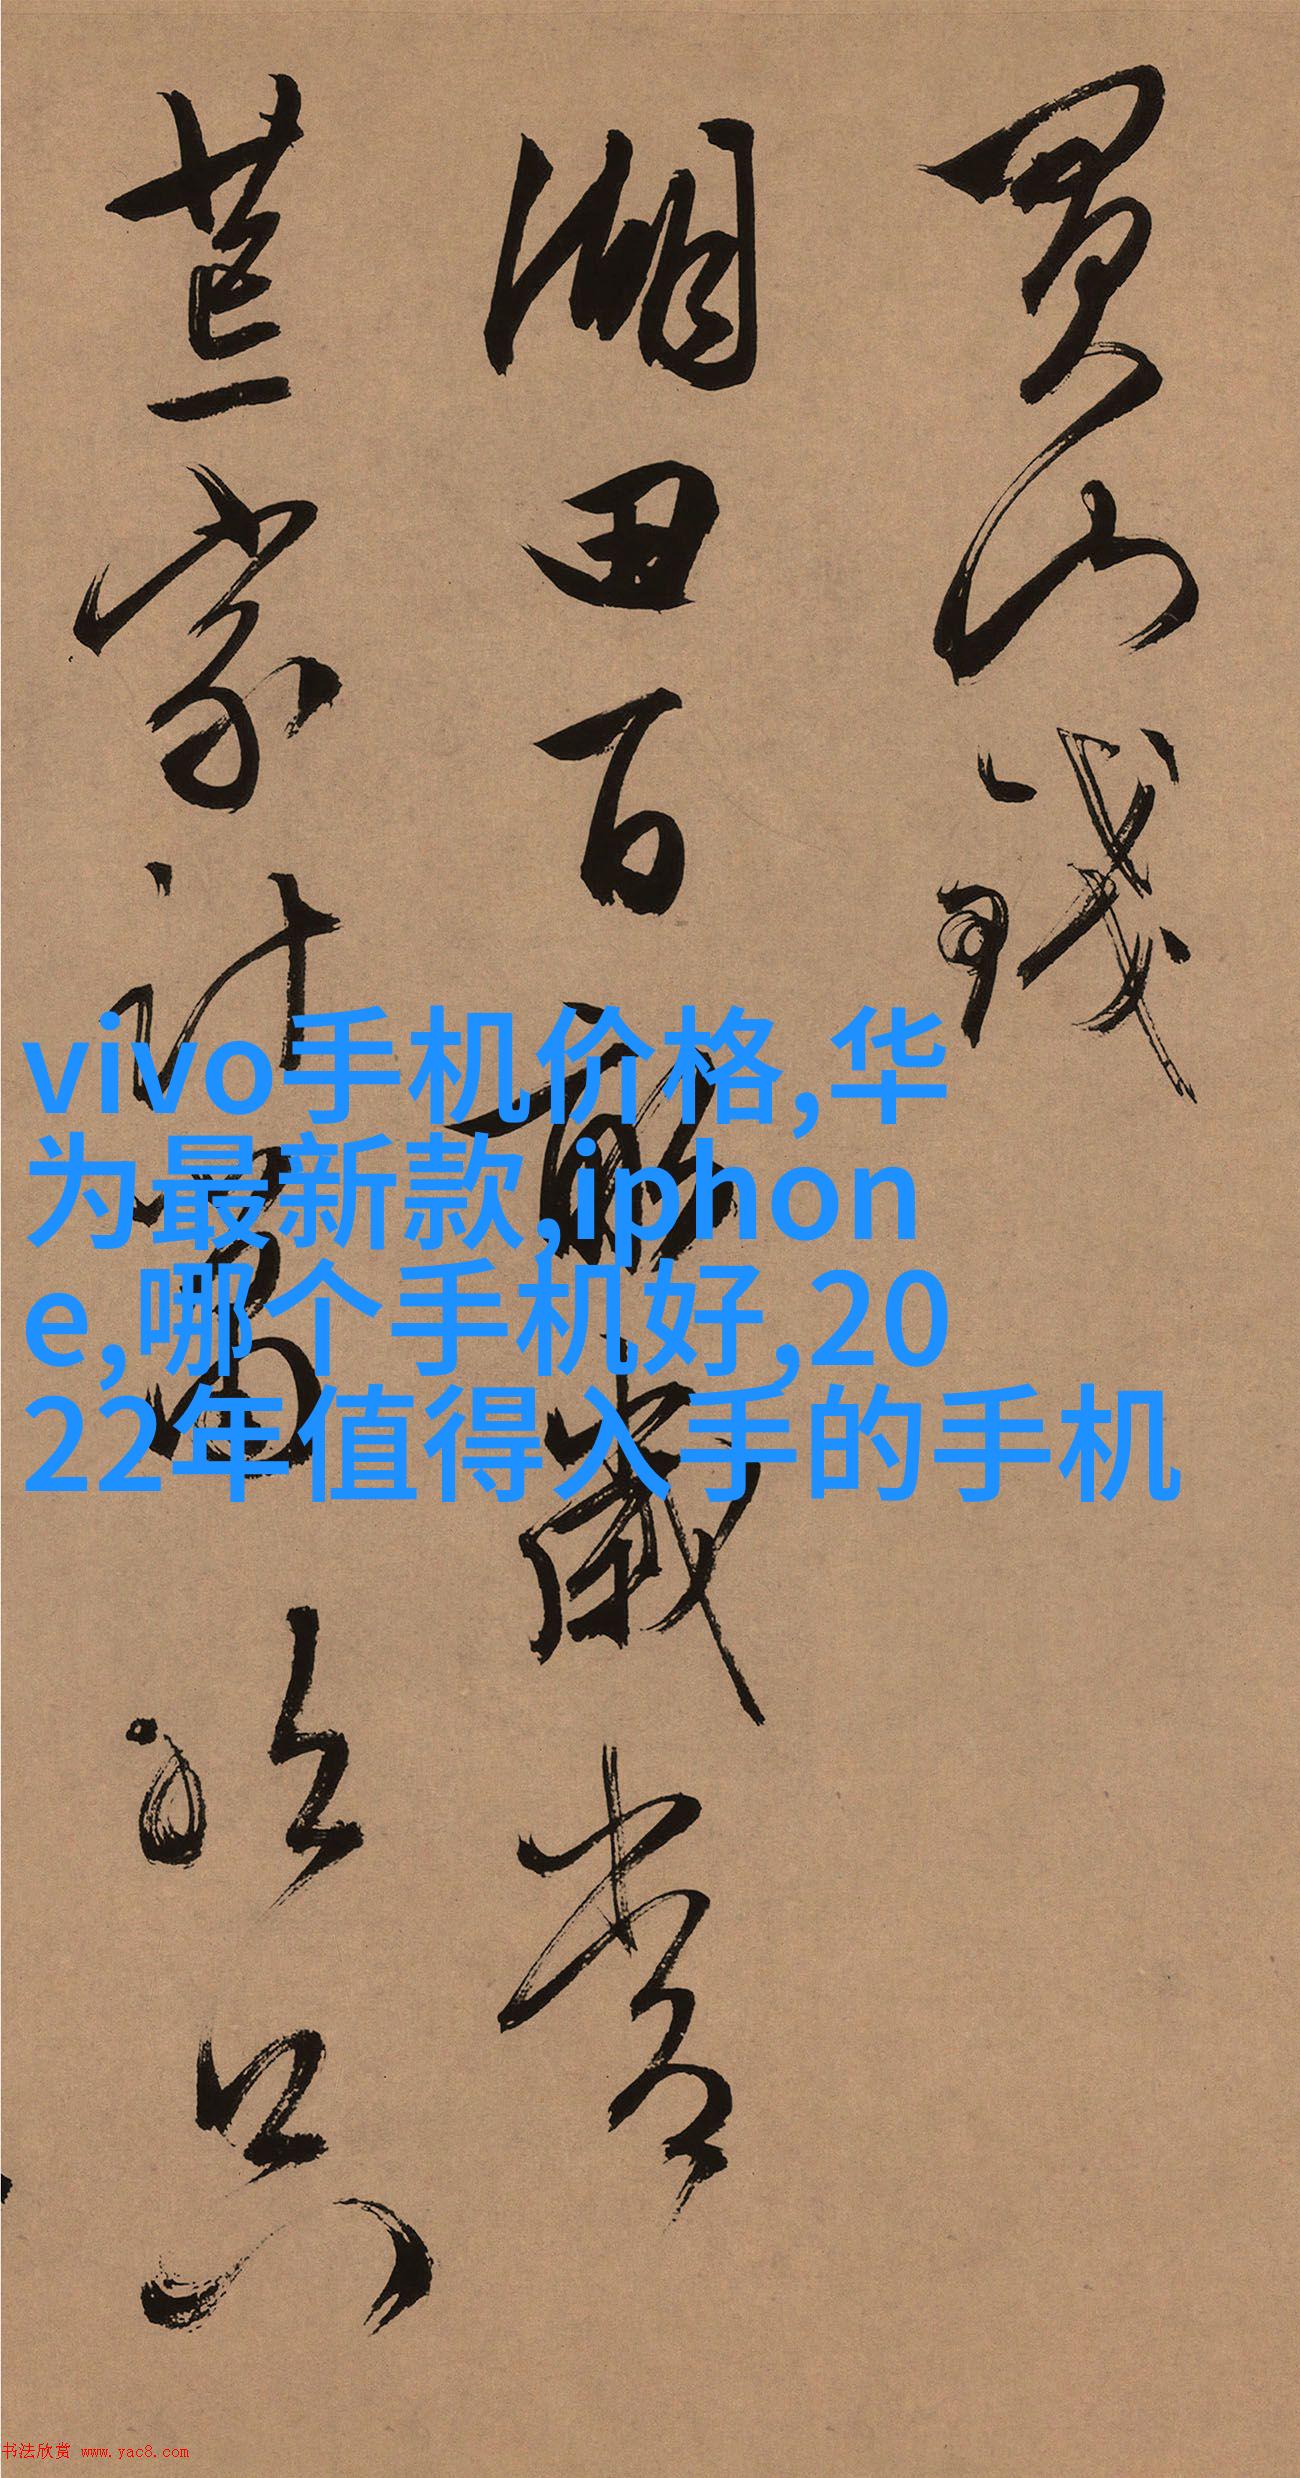 買山錢
湖田百畝歲常
荒家計
vivo手机价格,华
为最新款,iphon
e,哪个手机好,20
22年值得入手的手机
书法欣赏 www.yac8.com